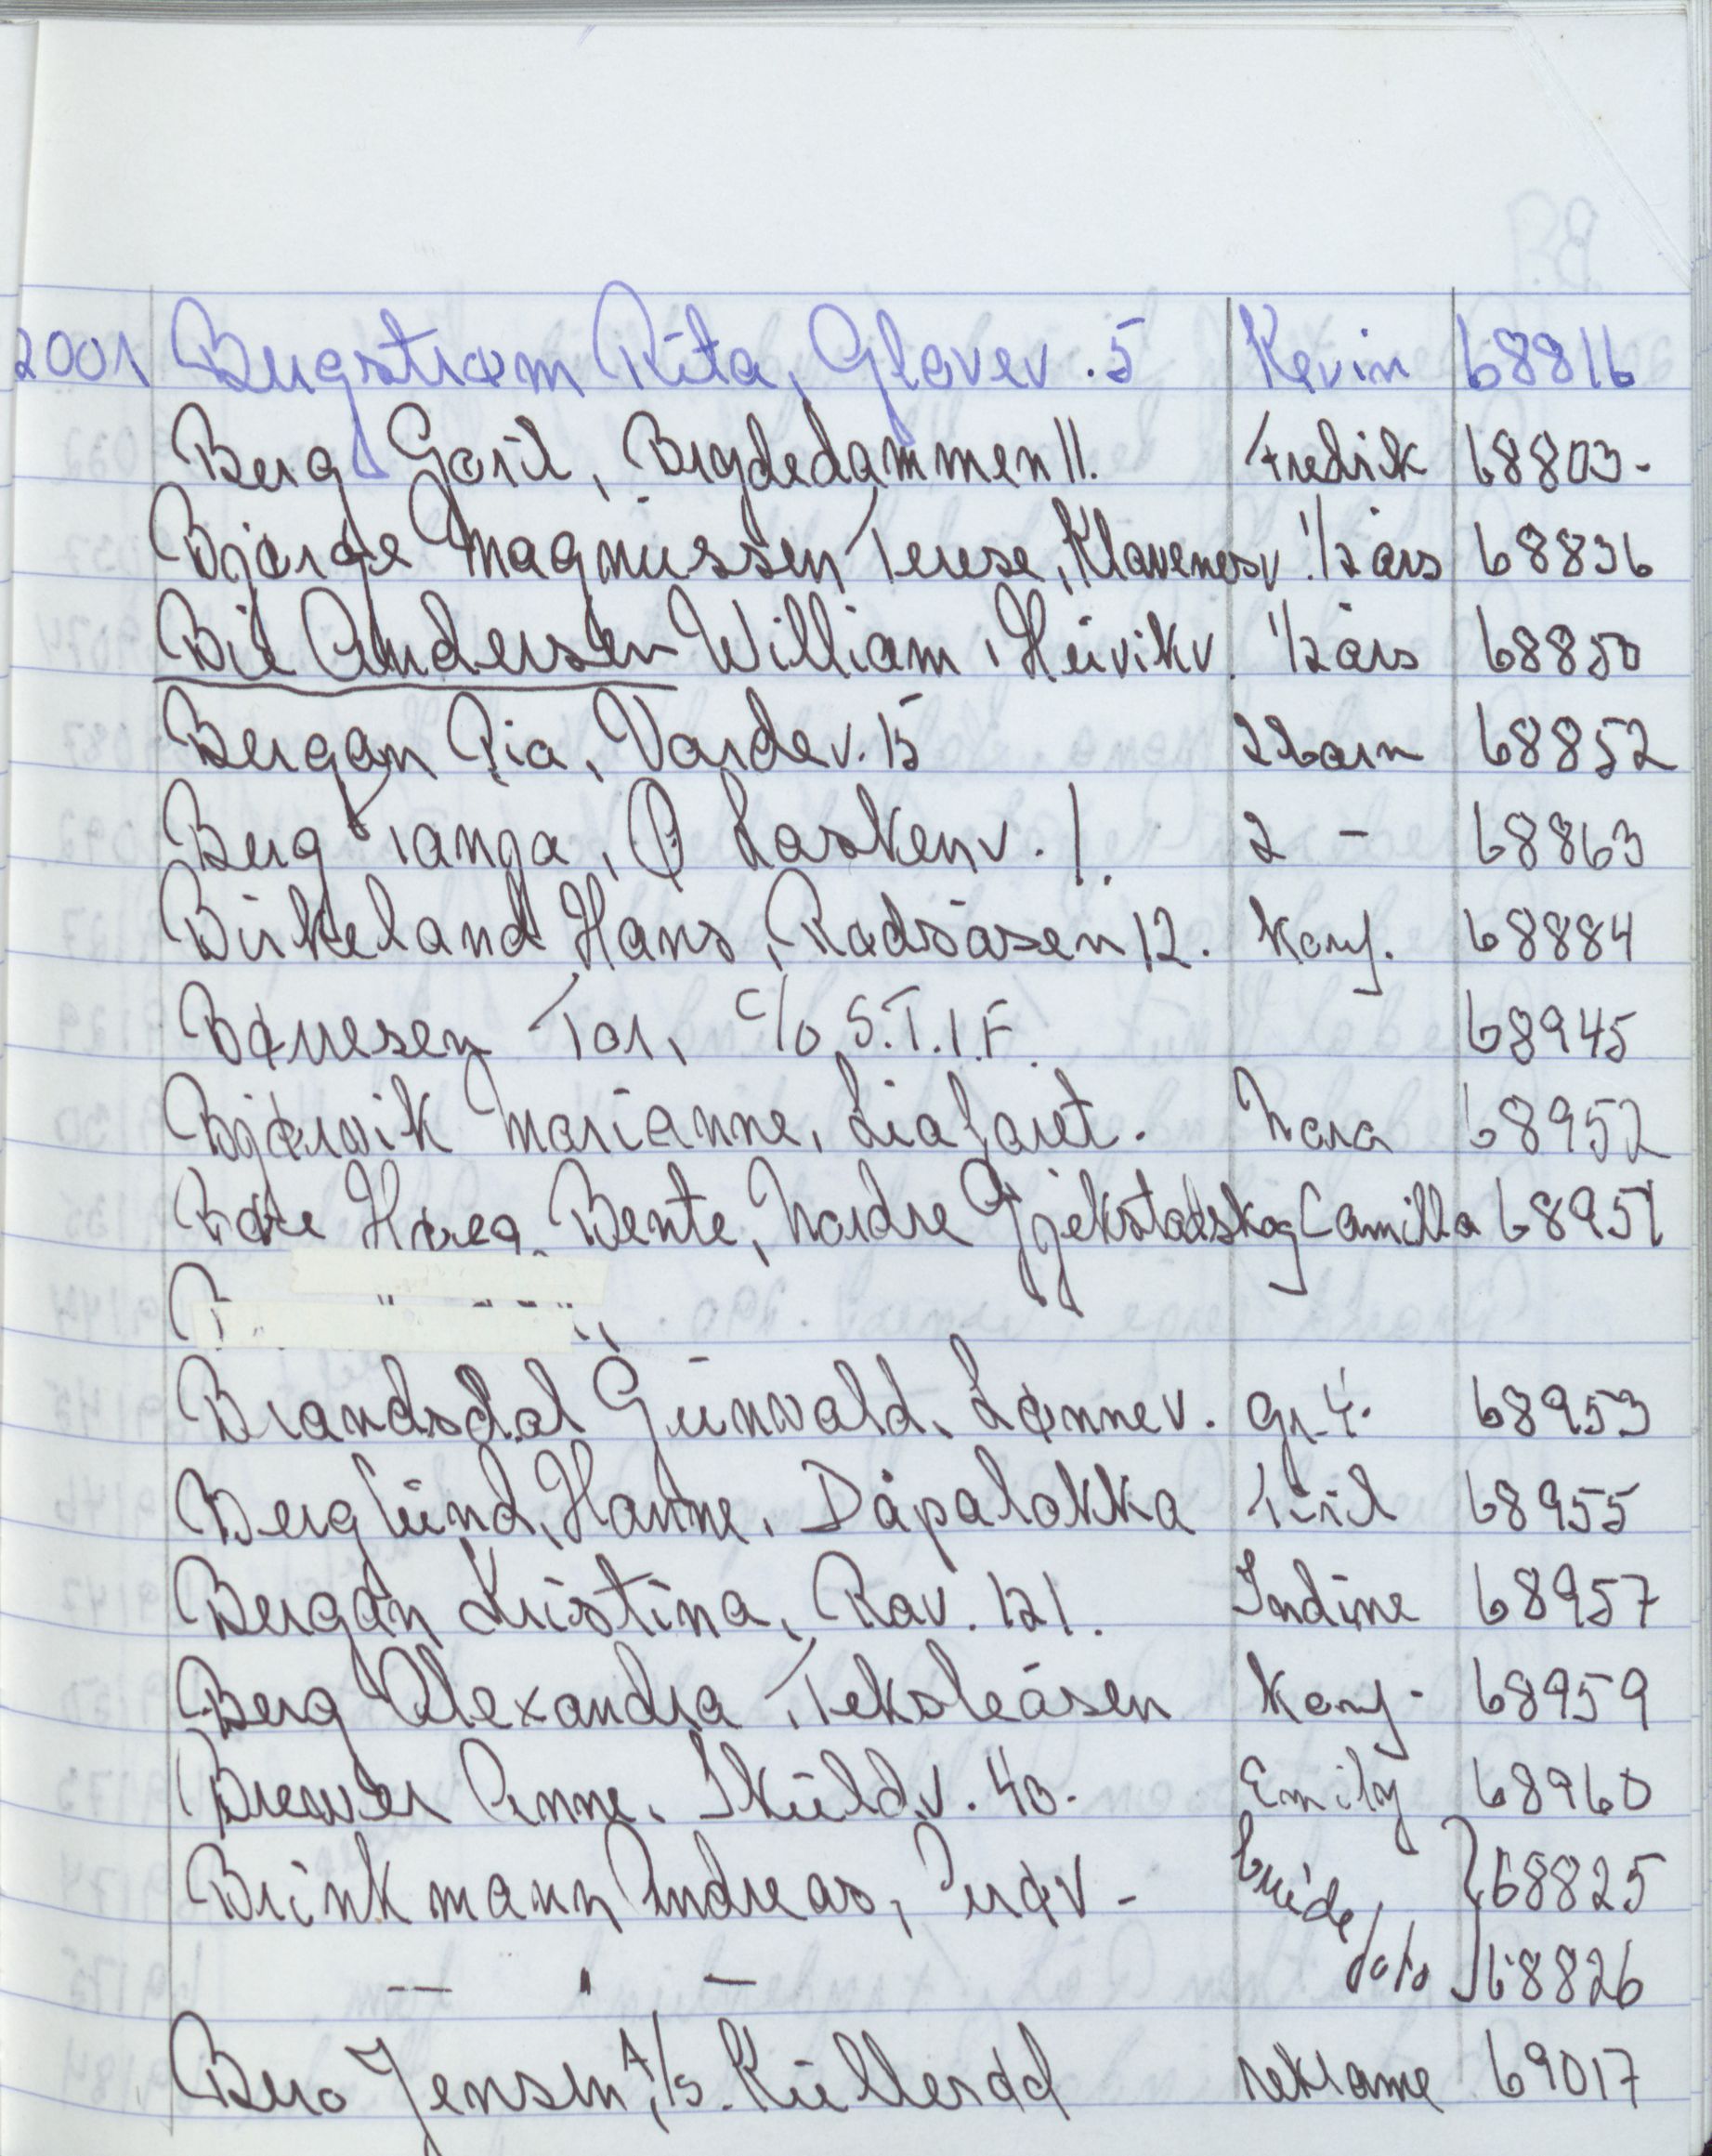 2001 Bergstrøm Rita, Gløvev. 5 Kevin 68816
Berg Goril, Brydedammen 11. Fredrik 68803.
Bjørge Magnussen Terese, Klavenesv. 1/2 års 68836
Bie Andersen William, Heivikv. 1/2 års 68850
Bergan Pia, Vardev. 15 2 barn 68852
Berg Tanja, Ø Laskenv. 1. 2 - 68863
Birkeland Hans, Rødsåsen 12. konf. 68884
Børresen Tor, c/o S.T.I.F. 68945
Bjørvik Marianne, Liafaret. Nora 68952
Bøe Bente, Nordre Gjekstadskog Camilla 68951
Brandsdal Gunvald, Lønnev. gr. 4. 68953
Berglund, Hanne, Dåpaløkka Tiril 68955
Bergan Kristina, Rav. 121. Indine 68957
Berg Alexandra, Teksleåsen konf. 68959
Brewer Anne, Skuldv. 40. Emily 68960
Brinkmann Andreas, brude 68825
— " — foto 68826
Bero Jensen A/s. reklame 69017